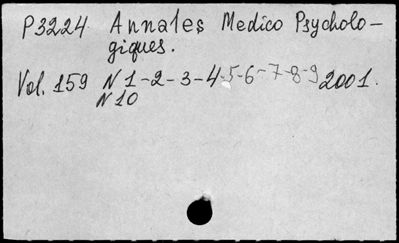 P3224 Annales Medico Psycholo-
giques.
Vol. 159 N 1-2-3-4-5-6-7-8-9 2001.
N 10